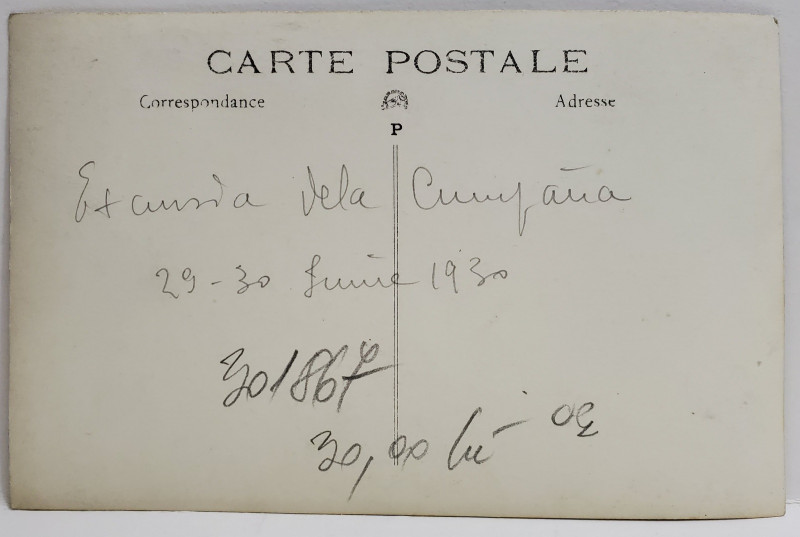 CARTE POSTALE
Correspondance Adresse
P
Excursia dela Cumpăna
29-30 Iunie 1930
301867
30,00 lei